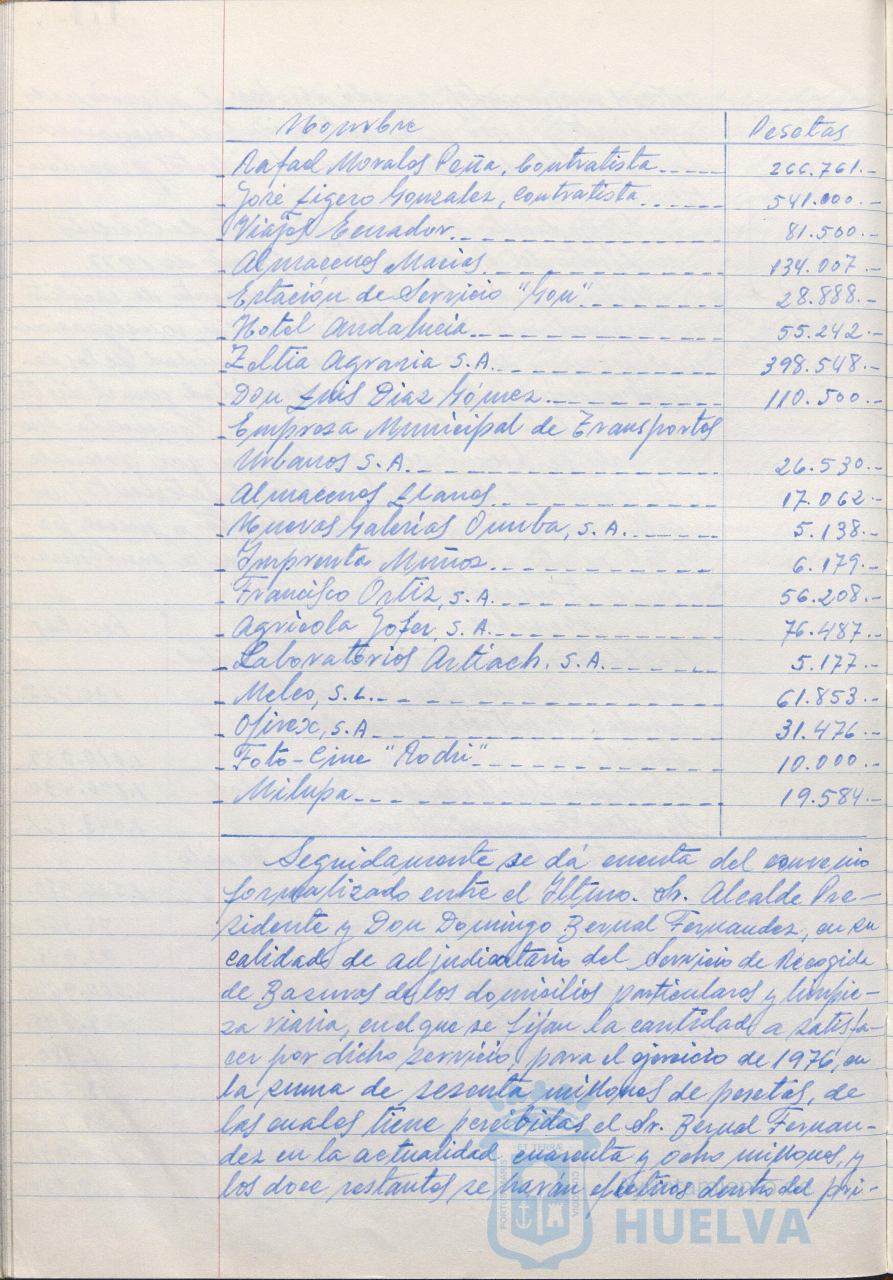 Nombre Pesetas
Rafael Morales Peña, Contratista 266.761.-
José Ligero Gonzalez, Contratista 541.000.-
Viajes Ecuador 81.500.-
Almacenes Macias 134.007.-
Estación de Servicio "Gon" 28.888.-
Hotel Andalucia 55.242.-
Zeltia Agraria S.A. 398.548.-
Don Luis Diaz Gómez 110.500.-
Empresa Municipal de Transportes
Urbanos S.A. 26.530.-
Almacenes Llanos 17.062.-
Nuevas Galerias Onuba, S.A. 5.138.-
Imprenta Muñoz 6.179.-
Francisco Ortiz, S.A. 56.208.-
Agricola Jofer, S.A. 76.487.-
Laboratorios Artiach. S.A. 5.177.-
Melco, S.L. 61.853.-
Ofirex, S.A 31.476.-
Foto-Cine "Rodri" 10.000.-
Milupa 19.584.-
Seguidamente se dá cuenta del convenio
formalizado entre el Iltmo. Sr. Alcalde Pre-
sidente y Don Domingo Bernal Fernandez, en su
calidad de adjudicatario del Servicio de Recogida
de Basuras de los domicilios particulares y limpie-
za viaria, en el que se fijan la cantidad a satisfa-
cer por dicho servicio, para el ejercicio de 1976, en
la suma de sesenta millones de pesetas, de
las cuales tiene percibidas el Sr. Bernal Fernan-
dez en la actualidad cuarenta y ocho millones, y
los doce restantes se harán efectivos dentro del pri-
Ayuntamiento
HUELVA